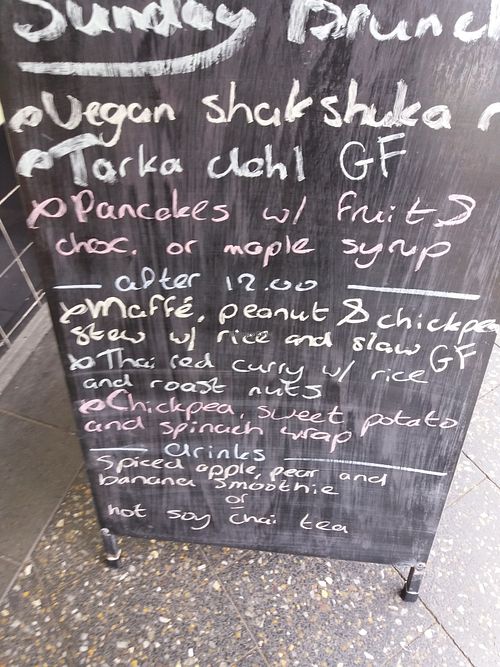 Sunday Brunch
Vegan shakshuka
Tarka dahl GF
Pancakes w/ fruit &
choc. or maple syrup
after 12.00
Maffé, peanut & chickpea
stew w/ rice and slaw GF
Thai red curry w/ rice
and roast nuts
Chickpea, sweet potato
and spinach wrap
drinks
Spiced apple, pear and
banana smoothie
or
hot soy chai tea